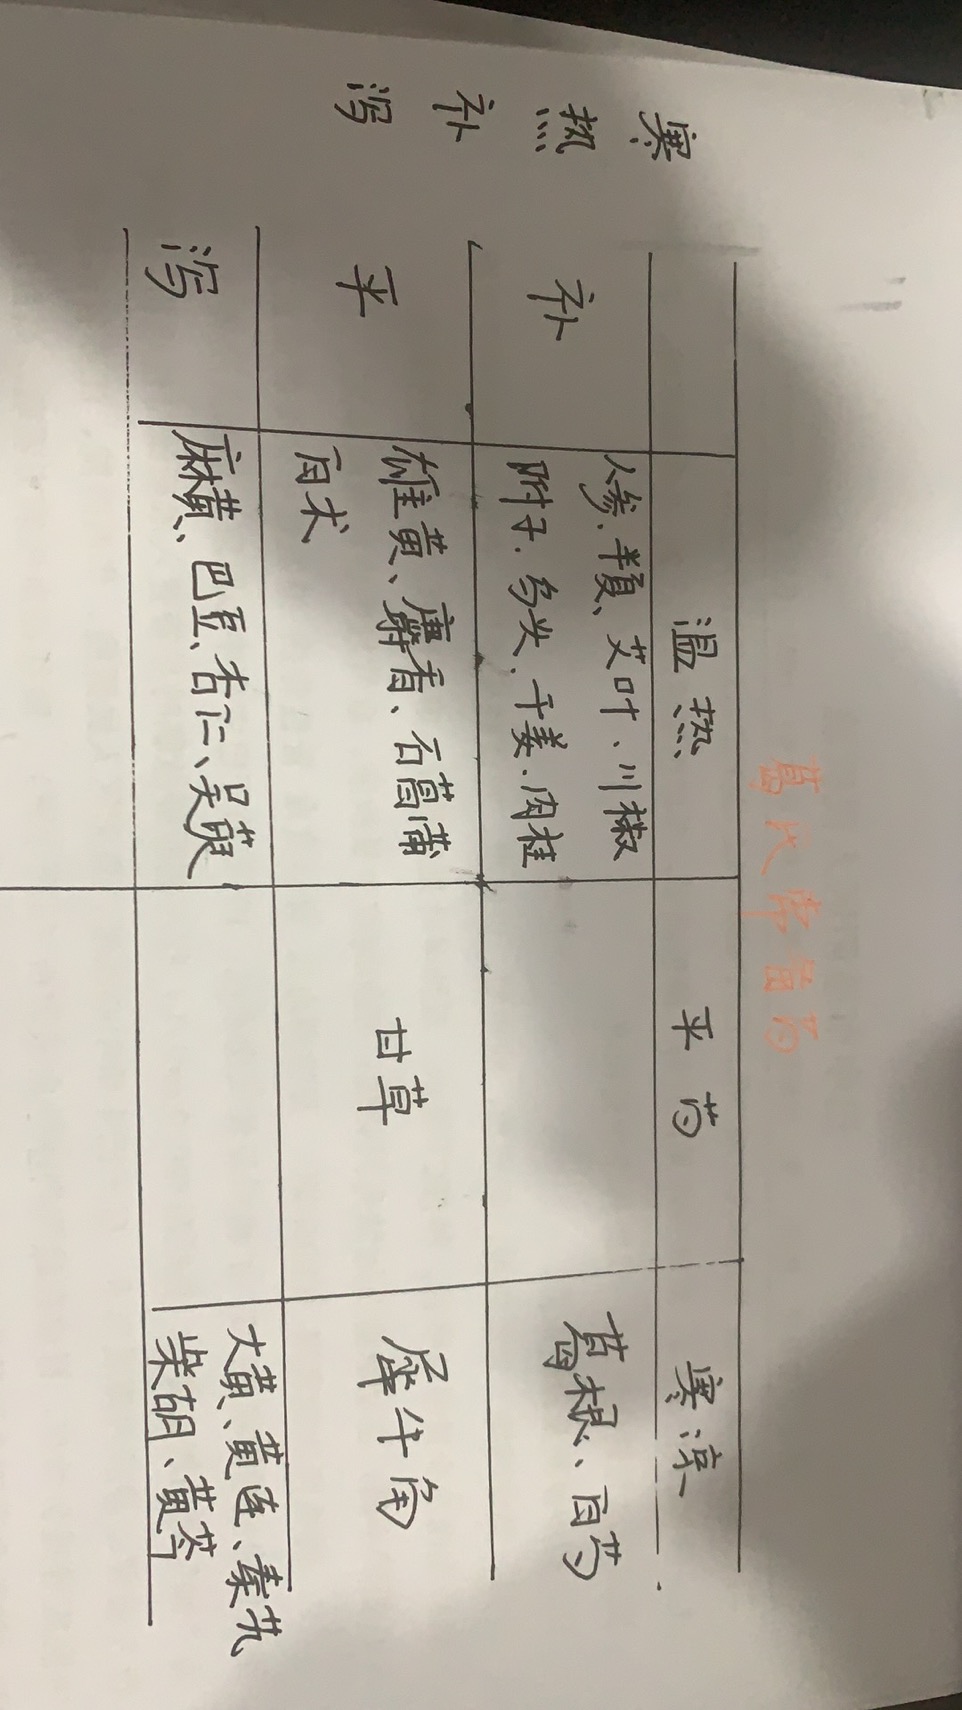 葛氏常备药
寒
热
补
泻
温热 平药 寒凉
补
人参、半夏、艾叶、川椒
附子、乌头、干姜、肉桂
葛根、白芍
平
雄黄、麝香、石菖蒲
白术
甘草
犀牛角
泻
麻黄、巴豆、杏仁、吴萸
大黄、黄连、秦艽
柴胡、黄芩